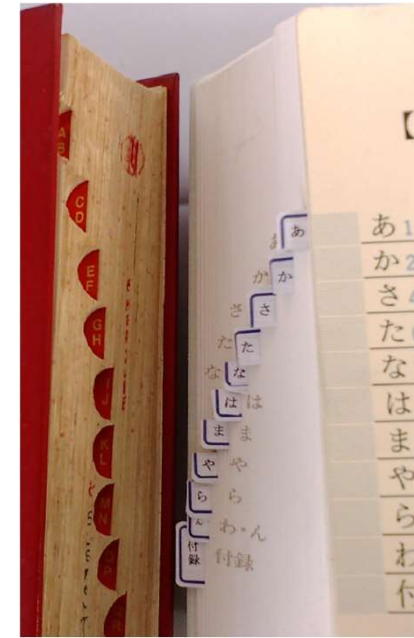 A
B
C
D
E
F
G
H
I
J
K
L
M
N
あ
か
さ
た
な
は
ま
や
ら
ん
付録
か
さ
た
な
は
ま
や
ら
わ・ん
付録
あ1
か2
さ
た
な
は
ま
や
ら
わ
付